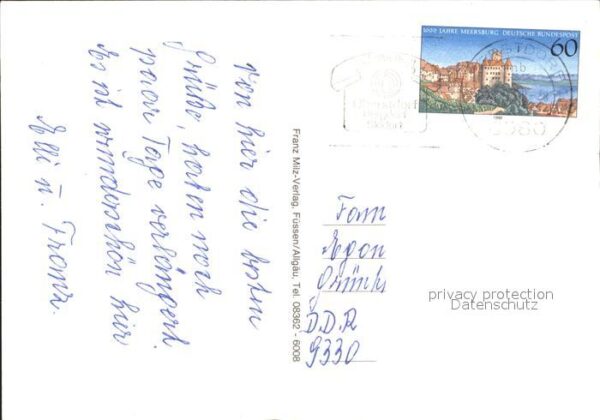 von hier die besten
Grüße, haben noch
paar Tage verlängert.
Es ist wunderschön hier
Elli u. Franz.
Franz Milz-Verlag, Füssen/Allgäu, Tel. 08362 - 6008
1000 JAHRE MEERSBURG DEUTSCHE BUNDESPOST
60
1988
Oberstdorf
Fam
Egon
D.D.R
9330
privacy protection
Datenschutz